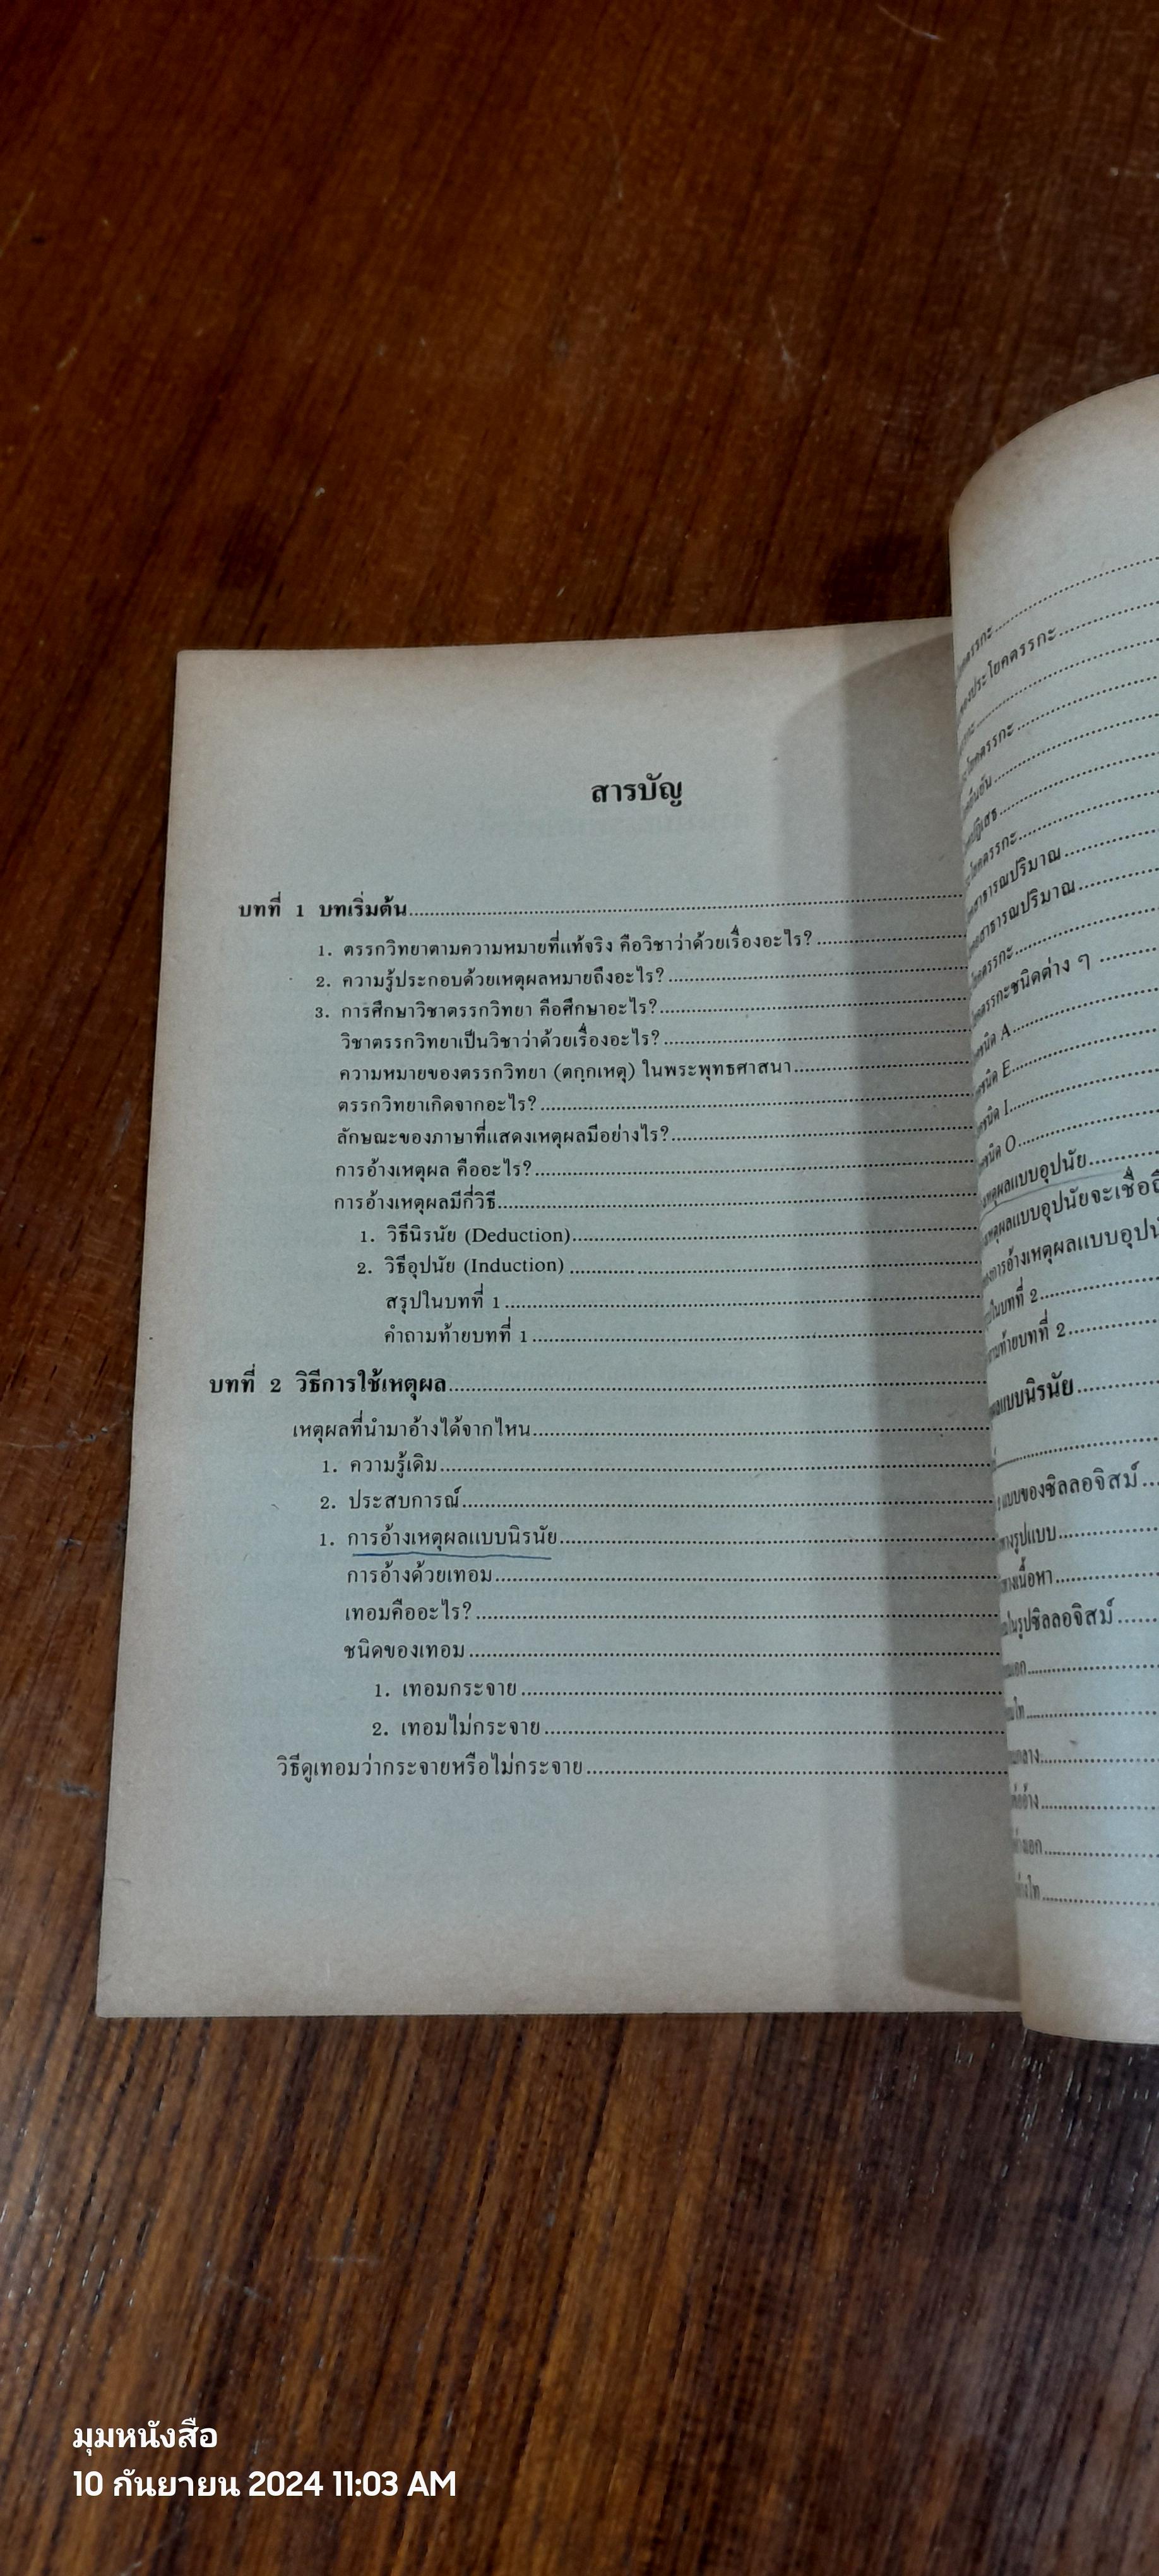 สารบัญ
บทที่ 1 บทเริ่มต้น
1. ตรรกวิทยาตามความหมายที่แท้จริง คือวิชาว่าด้วยเรื่องอะไร?
2. ความรู้ประกอบด้วยเหตุผลหมายถึงอะไร?
3. การศึกษาวิชาตรรกวิทยา คือศึกษาอะไร?
วิชาตรรกวิทยาเป็นวิชาว่าด้วยเรื่องอะไร?
ความหมายของตรรกวิทยา (ตกฺกเหตุ) ในพระพุทธศาสนา
ตรรกวิทยาเกิดจากอะไร?
ลักษณะของภาษาที่แสดงเหตุผลมีอย่างไร?
การอ้างเหตุผล คืออะไร?
การอ้างเหตุผลมีกี่วิธี
1. วิธีนิรนัย (Deduction)
2. วิธีอุปนัย (Induction)
สรุปในบทที่ 1
คำถามท้ายบทที่ 1
บทที่ 2 วิธีการใช้เหตุผล
เหตุผลที่นำมาอ้างได้จากไหน
1. ความรู้เดิม
2. ประสบการณ์
1. การอ้างเหตุผลแบบนิรนัย
การอ้างด้วยเทอม
เทอมคืออะไร?
ชนิดของเทอม
1. เทอมกระจาย
2. เทอมไม่กระจาย
วิธีดูเทอมว่ากระจายหรือไม่กระจาย
ของประโยคตรรกะ
ชนิด A
ชนิด E
ชนิด I
ชนิด O
เหตุผลแบบอุปนัย
เหตุผลแบบอุปนัยจะเชื่อ
การอ้างเหตุผลแบบอุปนั
ในบทที่ 2
ท้ายบทที่ 2
แบบนิรนัย
แบบของซิลลอจิสม์
ทางรูปแบบ
ทางเนื้อหา
ในรูปซิลลอจิสม์
มุมหนังสือ
10 กันยายน 2024 11:03 AM